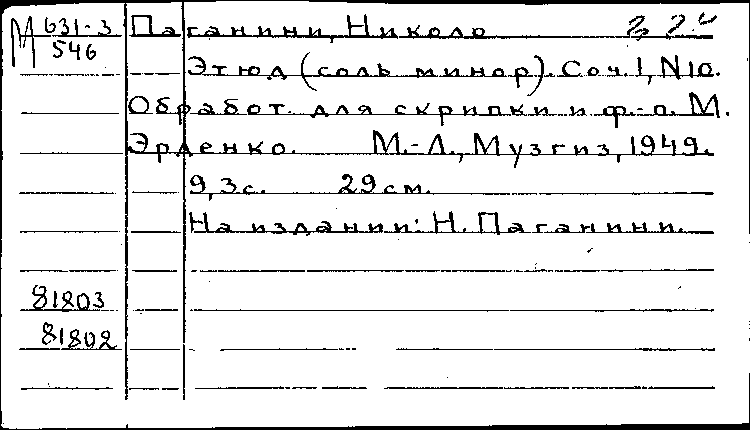 М 631-3 Паганини, Николо
546
Этюд (соль минор). Соч. 1, N10.
Обработ. для скрипки и ф.-п. М.
Эрденко. М.-Л., Музгиз, 1949.
9, 3 с. 29 см.
На издании: Н. Паганини.
81803
81802